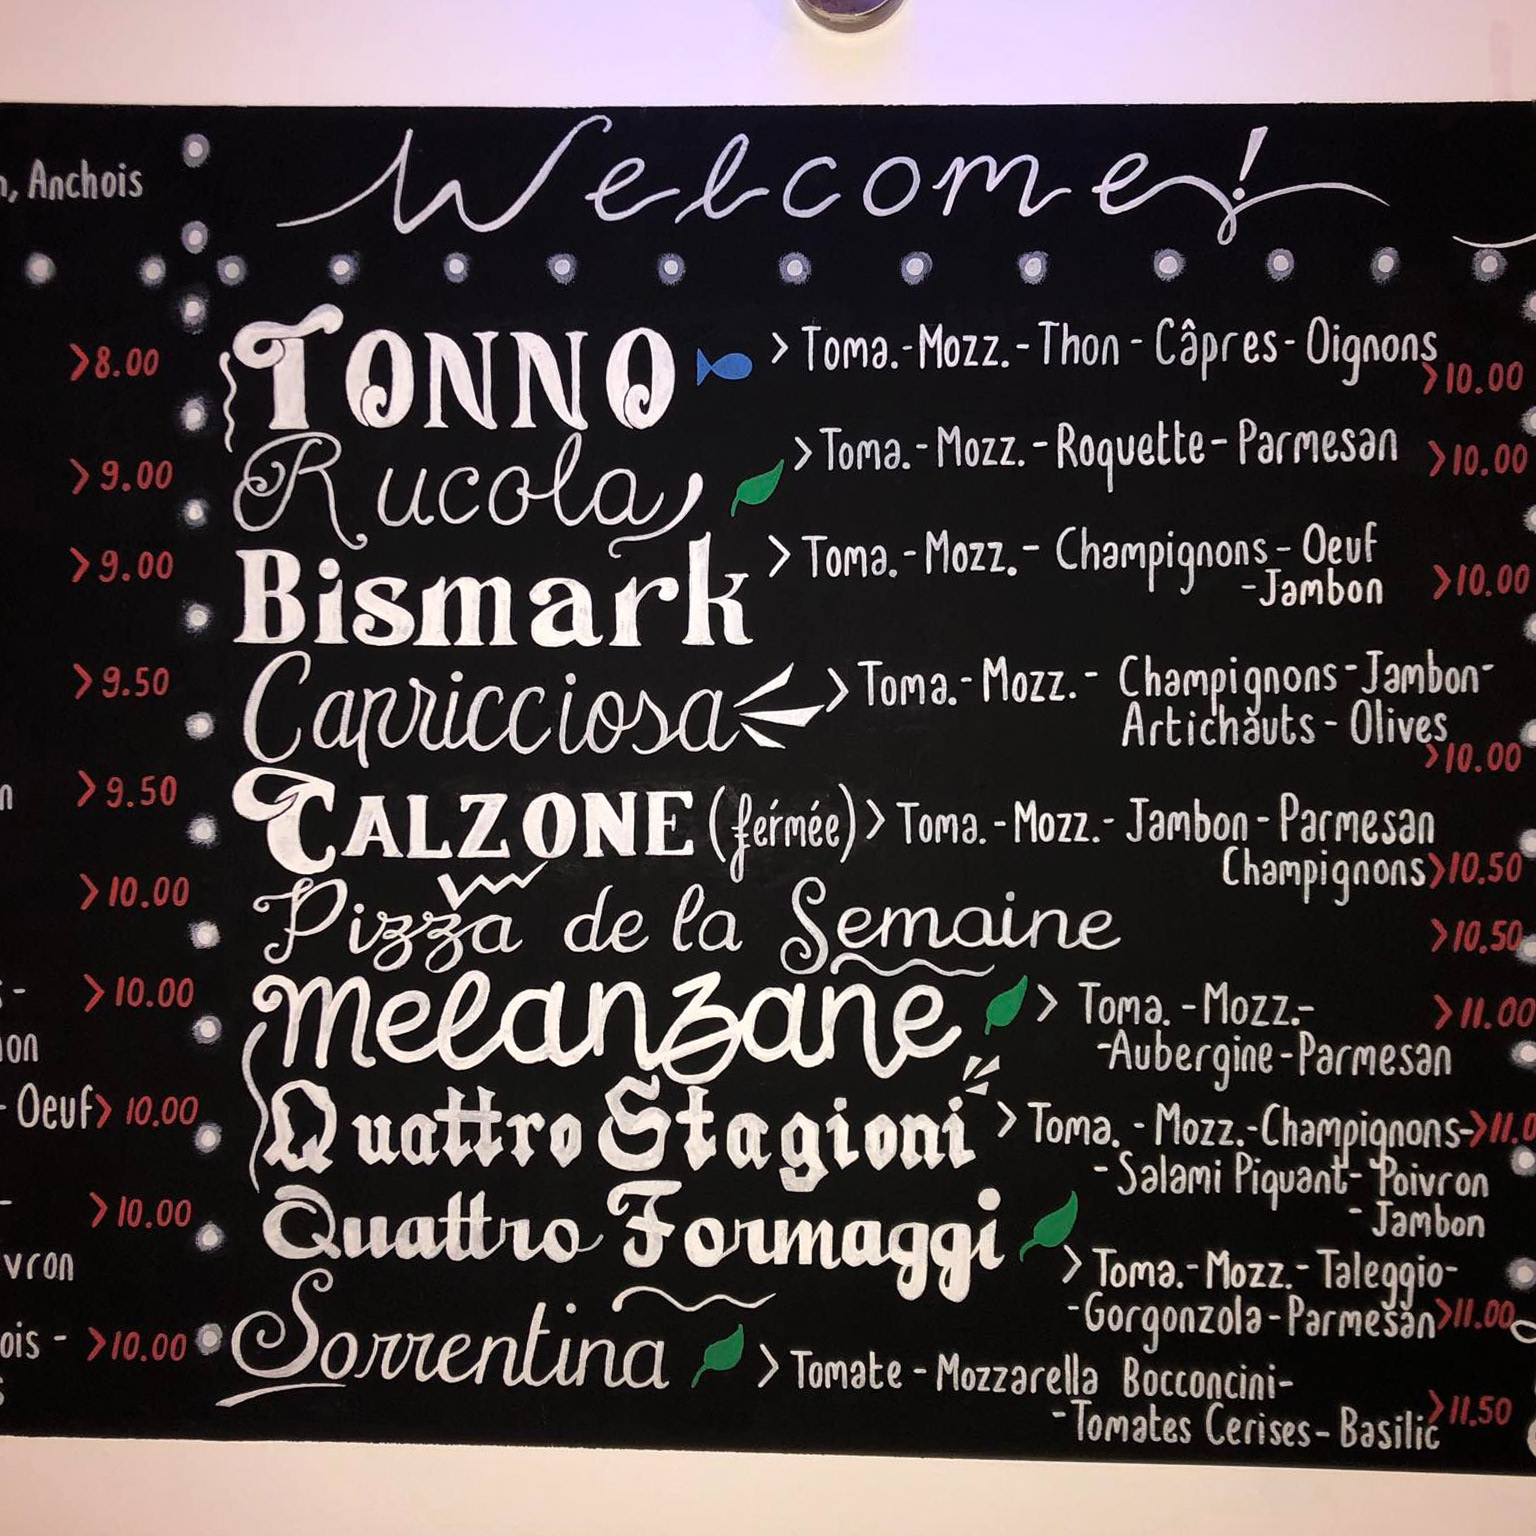 Anchois
>8.00
>9.00
>9.00
>9.50
>9.50
>10.00
>10.00
- Oeuf>10.00
>10.00
>10.00
Welcome!
TONNO >Toma.-Mozz.-Thon-Câpres-Oignons
>10.00
Rucola >Toma.-Mozz.-Roquette-Parmesan >10.00
Bismark >Toma.-Mozz.- Champignons-Oeuf
-Jambon >10.00
Capricciosa >Toma.-Mozz.- Champignons-Jambon-
Artichauts-Olives
>10.00
CALZONE (fermée) >Toma.-Mozz.-Jambon-Parmesan
Champignons>10.50
Pizza de la Semaine >10.50
Melanzane > Toma.-Mozz.- >11.00
-Aubergine-Parmesan
Quattro Stagioni >Toma.-Mozz.-Champignons->11.0
-Salami Piquant-Poivron
-Jambon
Quattro Formaggi
>Toma.-Mozz.-Taleggio-
-Gorgonzola-Parmesan>11.00
Sorrentina >Tomate-Mozzarella Bocconcini-
-Tomates Cerises-Basilic >11.50